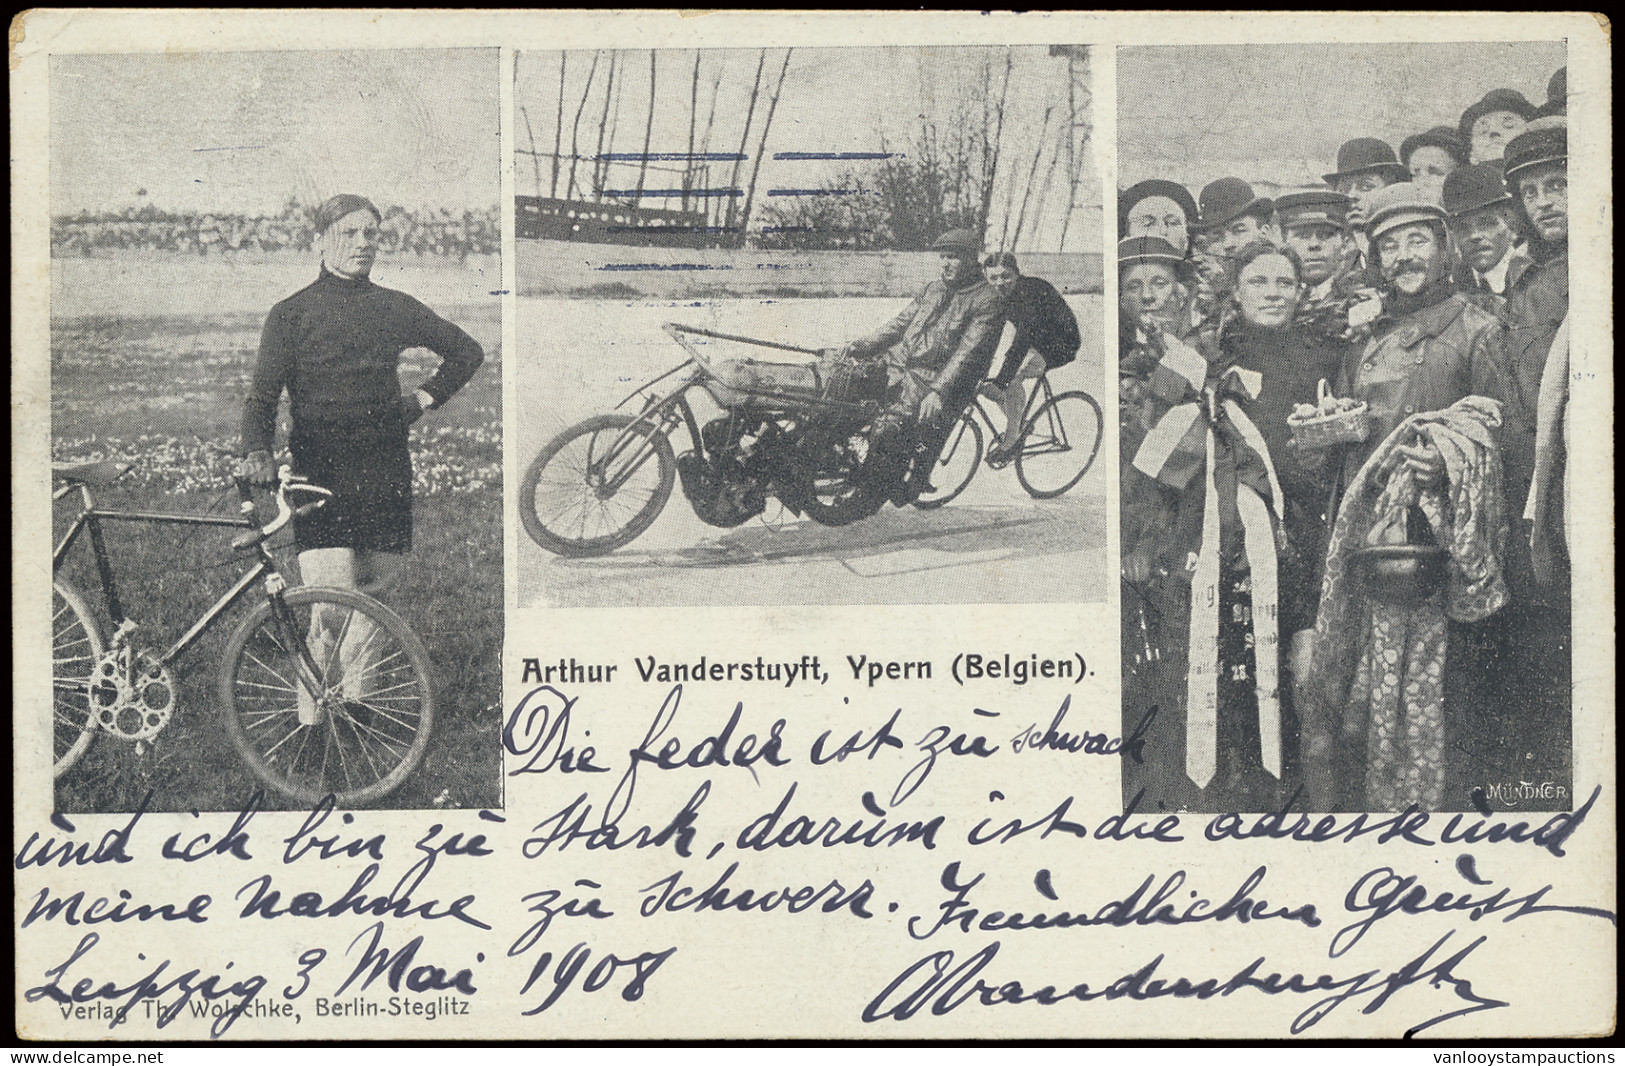 Arthur Vanderstuyft, Ypern (Belgien).
C. MÜNDNER
Die feder ist zu schwach
und ich bin zu stark, darum ist die adresse und
meine Nahme zu schwerr. Freundlichen Grüss
Leipzig 3 Mai 1908 AVanderstuyft
Verlag Th. Wolschke, Berlin-Steglitz
www.delcampe.net
vanlooystampauctions